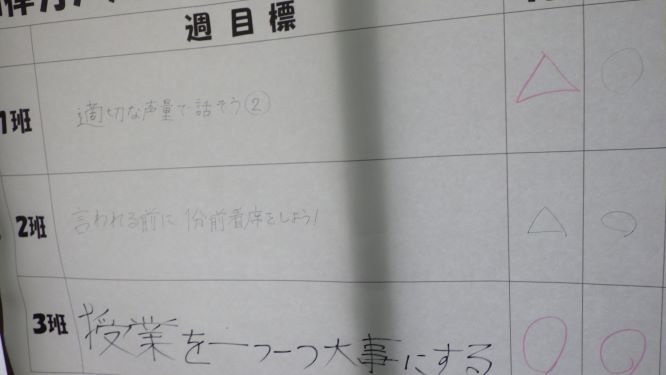 週目標
1班 適切な声量で話そう② △ ○
2班 言われる前に 1分前着席をしよう! △ ○
3班 授業を一つ一つ大事にする ○ ○